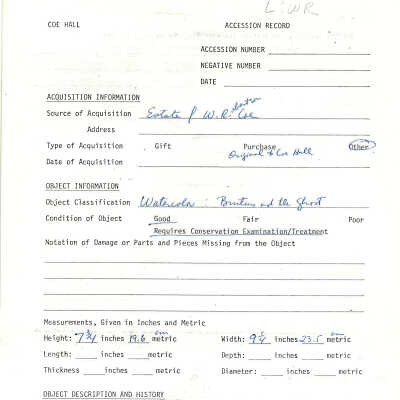 L: WR
COE HALL ACCESSION RECORD
ACCESSION NUMBER
NEGATIVE NUMBER
DATE
ACQUISITION INFORMATION
Source of Acquisition Estate of W.R. Coe
Address
Type of Acquisition Gift Purchase Other
Original to Coe Hall
Date of Acquisition
OBJECT INFORMATION
Object Classification Watercolor: Brutus and the Ghost
Condition of Object Good Fair Poor
Requires Conservation Examination/Treatment
Notation of Damage or Parts and Pieces Missing from the Object
Measurements, Given in Inches and Metric
Height: 7 3/4 inches 19.6 cm metric Width: 9 inches 23.5 cm metric
Length: inches metric Depth: inches metric
Thickness inches metric Diameter: inches metric
OBJECT DESCRIPTION AND HISTORY